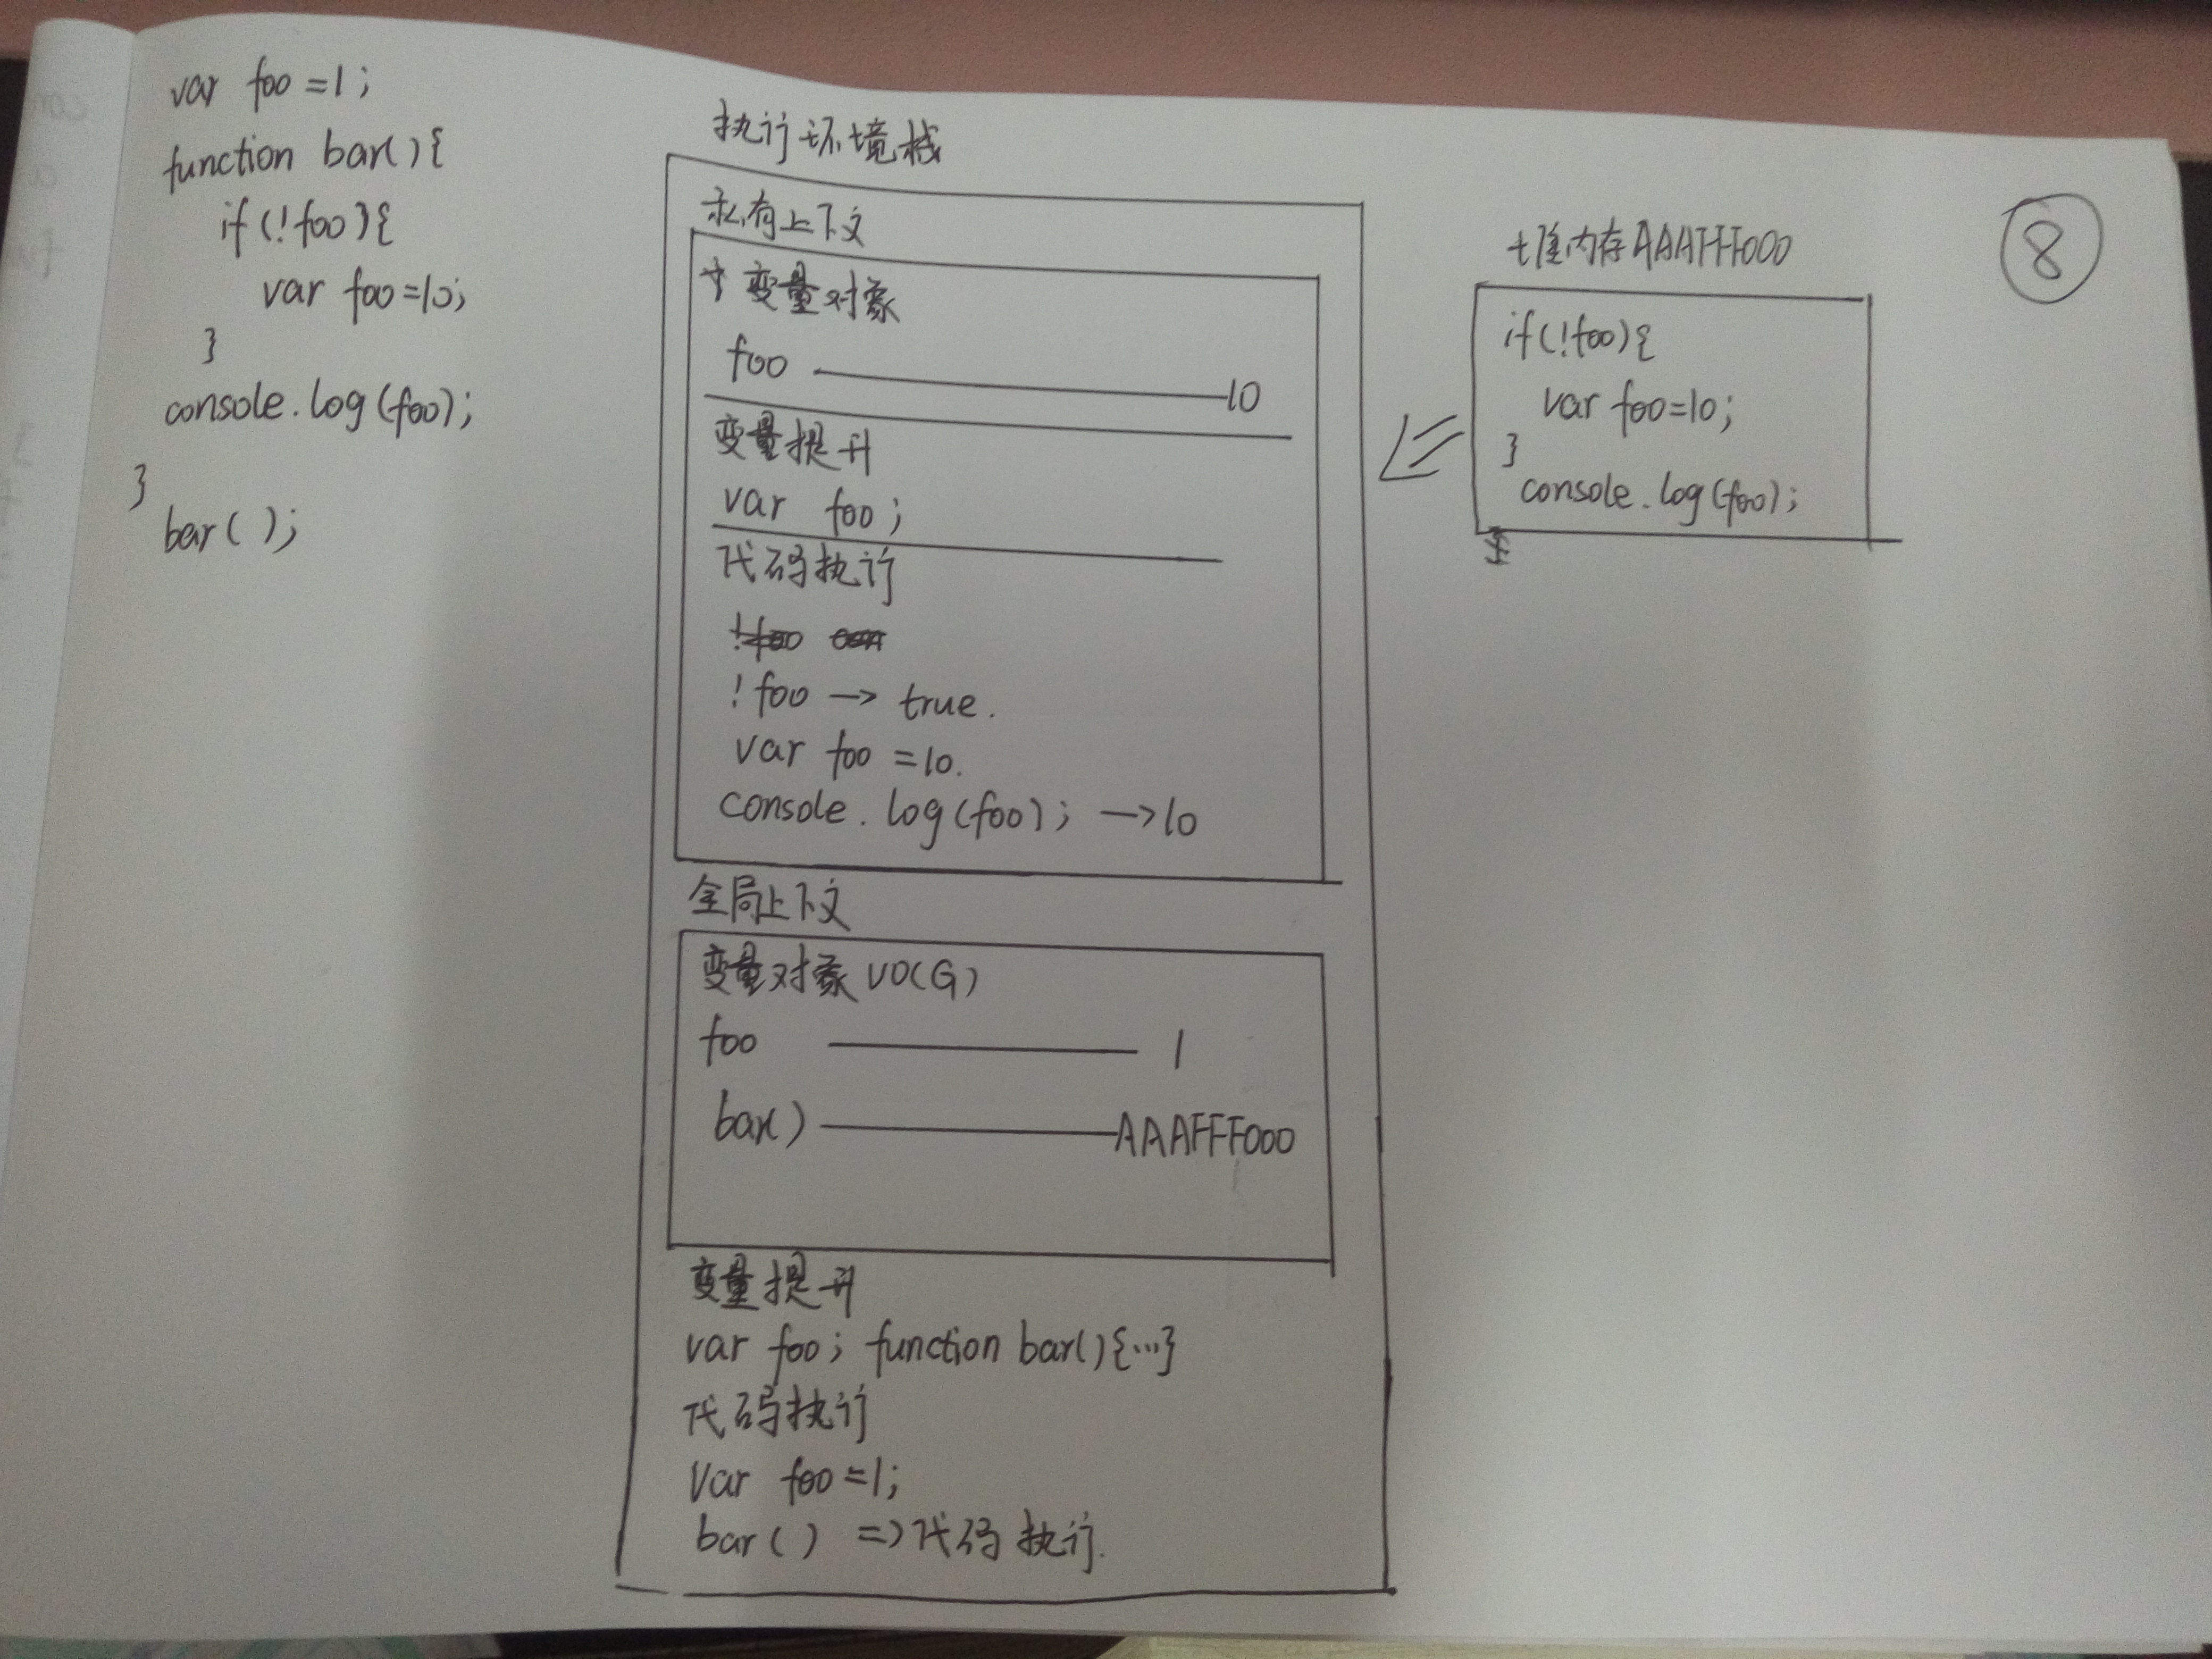 var foo = 1;
function bar(){
if(!foo){
var foo=10;
}
console.log(foo);
}
bar();
执行环境栈
私有上下文
变量对象
foo 10
变量提升
var foo;
代码执行
!foo
!foo → true.
var foo = 10.
console.log(foo); → 10
全局上下文
变量对象 VO(G)
foo 1
bar() AAAFFF000
变量提升
var foo; function bar(){...}
代码执行
var foo = 1;
bar() => 代码执行.
堆内存 AAAFFF000
if(!foo){
var foo=10;
}
console.log(foo);
8